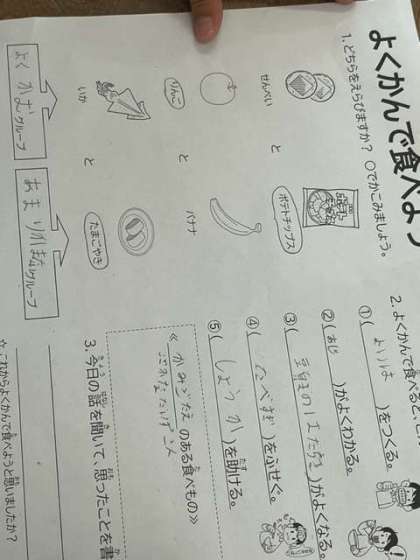 よくかんで食べよう
1. どちらをえらびますか？ ○でかこみましょう。
せんべい
と
ポテトチップス
りんご
と
バナナ
いか
と
たまごやき
よくかむグループ
あまりかまないグループ
2. よくかんで食べると
①( よいは )をつくる。
②( あじ )がよくわかる。
③( のはたらき )がよくなる。
④( たべすぎ )をふせぐ。
⑤( しょうか )を助ける。
≪ かみごたえ のある食べもの≫
3. 今日の話を聞いて、思ったことを書
☆これからよくかんで食べようと思いましたか？